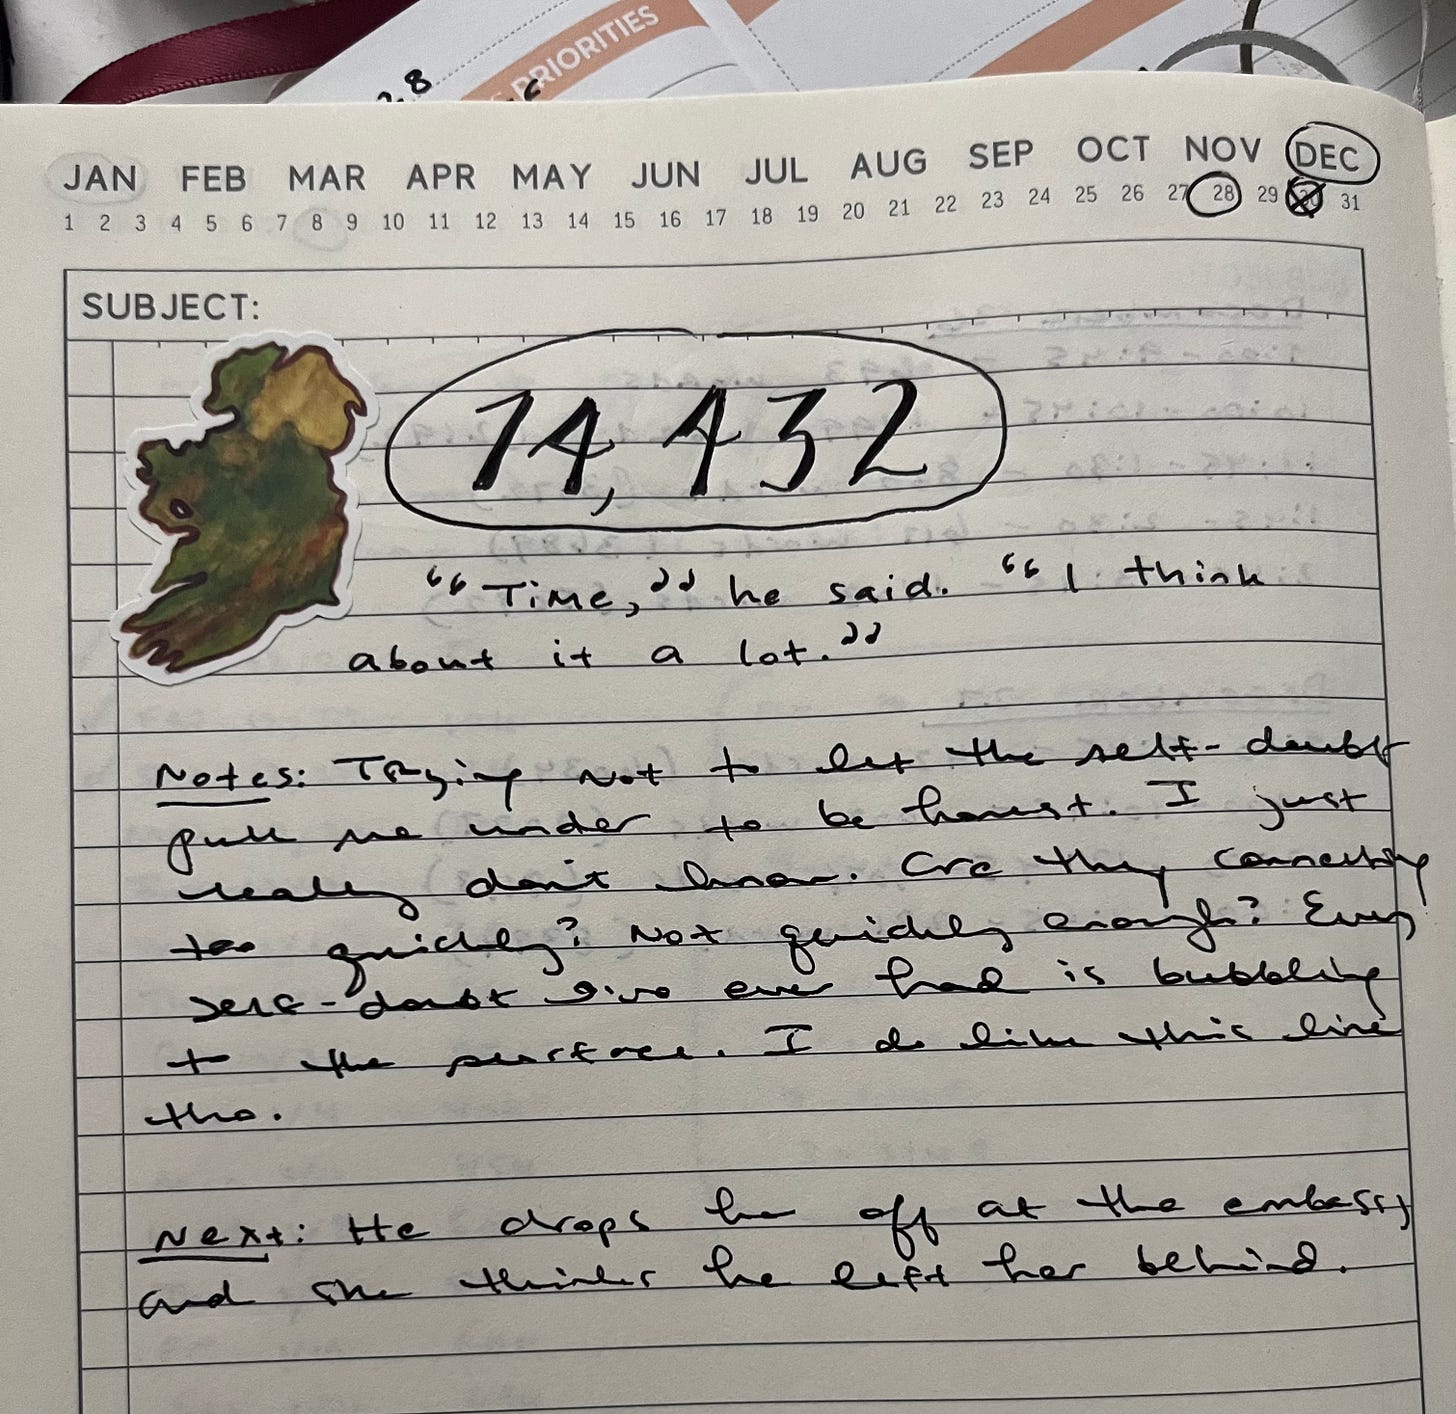 28
PRIORITIES
JAN FEB MAR APR MAY JUN JUL AUG SEP OCT NOV DEC
1 2 3 4 5 6 7 8 9 10 11 12 13 14 15 16 17 18 19 20 21 22 23 24 25 26 27 28 29 30 31
SUBJECT:
74,432
“Time,” he said. “I think
about it a lot.”
Notes: Trying not to let the self-doubt
pull me under to be honest. I just
really don't know. Are they connecting
too quickly? Not quickly enough? Every
self-doubt I've ever had is bubbling
to the surface. I do like this line
tho.
Next: He drops her off at the embassy
and she thinks he left her behind.